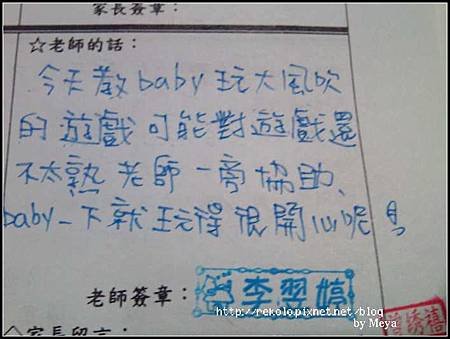 家長簽章：
☆老師的話：
今天教baby玩大風吹
的遊戲可能對遊戲還
不太熟老師一旁協助、
baby一下就玩得很開心呢！
老師簽章：李翌婷
http://rekolopixnet.net/blog
by Meya
曾綉禧
△家長留言：